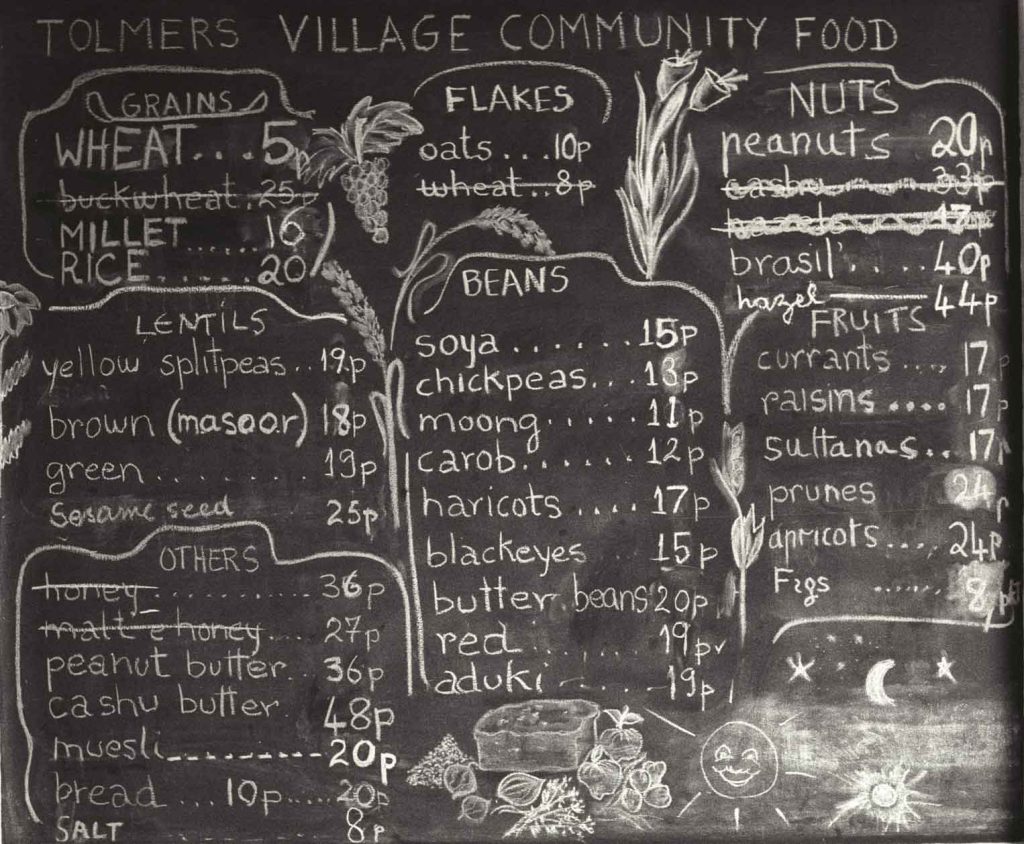 TOLMERS VILLAGE COMMUNITY FOOD
GRAINS
WHEAT... 5p
buckwheat. 25p
MILLET...... 16
RICE....... 20
LENTILS
yellow splitpeas.. 19p
brown (masoor) 18p
green......... 19p
Sesame seed 25p
OTHERS
honey............ 36p
malt e honey.... 27p
peanut butter.. 36p
cashu butter. 48p
muesli--------- 20p
bread ... 10p..... 20p
SALT 8p
FLAKES
oats...10p
wheat..8p
BEANS
soya....... 15p
chickpeas... 13p
moong...... 11p
carob....... 12p
haricots.... 17p
blackeyes 15p
butter beans 20p
red........ 19p
aduki ..... 19p
NUTS
peanuts 20p
cashu 33p
brasil'.... 40p
hazel 44p
FRUITS
currants.... 17p
raisins.... 17p
sultanas.. 17p
prunes 24p
apricots.... 24p
Figs ....... 8p